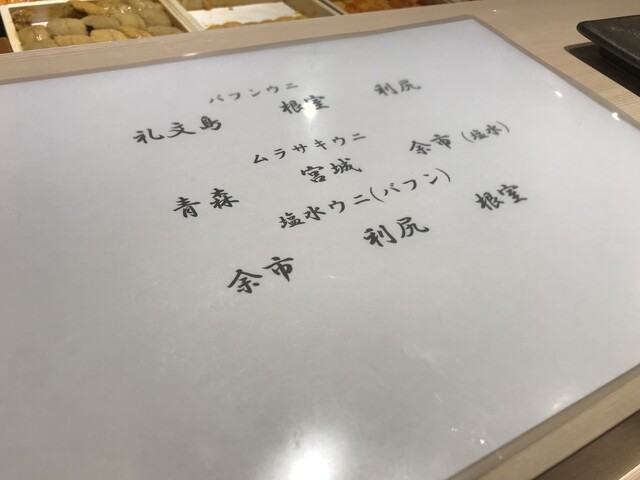 バフンウニ
礼文島 根室 利尻
ムラサキウニ
青森 宮城 余市(塩水)
塩水ウニ(バフン)
余市 利尻 根室